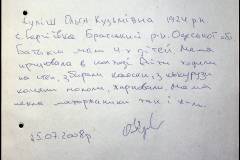 Куліш Ольга Кузьмівна 1924 р.н.
с. Сергіївка Братський р-н. Одеської обл
Батьки мали 4-х дітей мама
працювала в колгоспі Діти ходили
на степ, збирали колоски, з кукурузи
качани мололи, харчували, мама
пекла маторжаники так і жили.
25.07.2008р